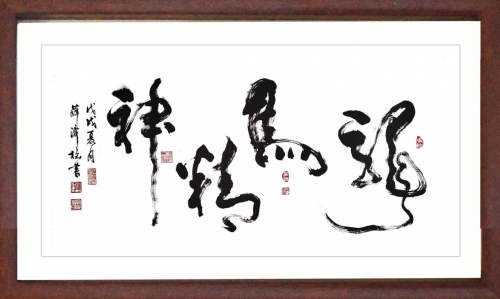 龍馬精神
戊戌夏月
薛澤楹書